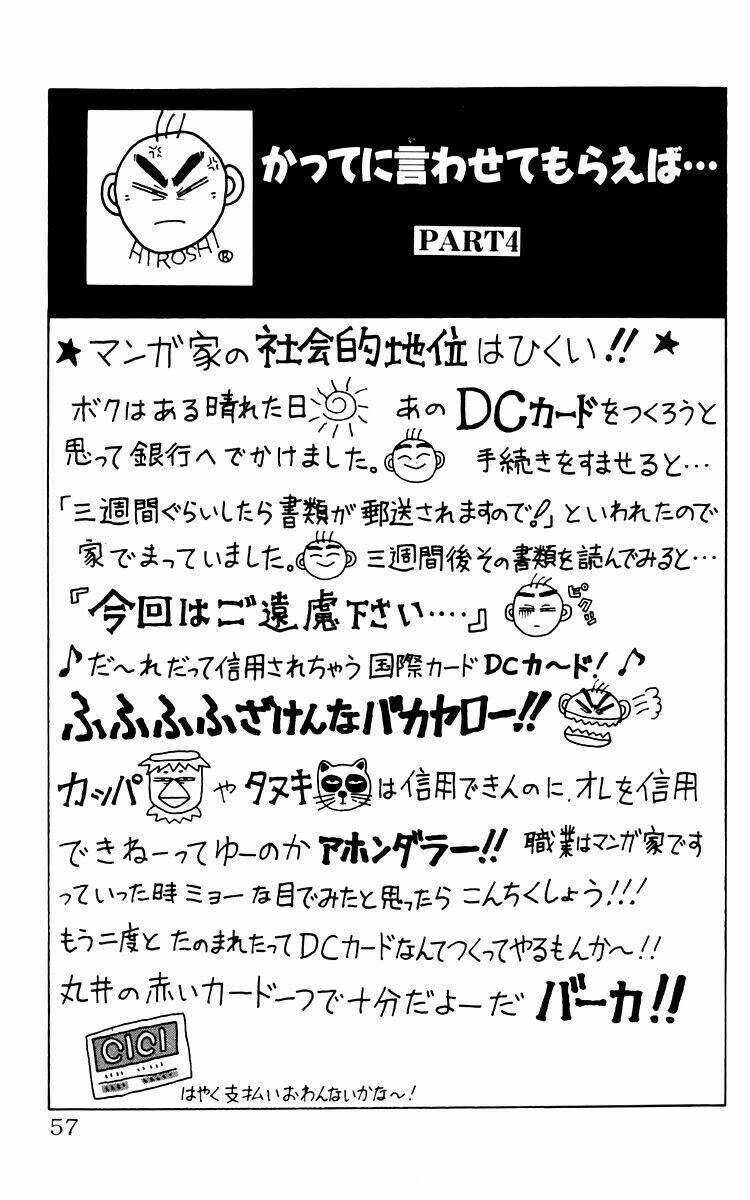 かってに言わせてもらえば…
PART4
HIROSHI®
★マンガ家の社会的地位はひくい!!★
ボクはある晴れた日 あのDCカードをつくろうと
思って銀行へでかけました。 手続きをすませると…
「三週間ぐらいしたら書類が郵送されますので!」といわれたので
家でまっていました。 三週間後その書類を読んでみると…
『今回はご遠慮下さい‥‥』 ピクッ
♪だ〜れだって信用されちゃう国際カードDCカ〜ド!♪
ふふふふざけんなバカヤロー!!
カッパやタヌキは信用できんのに、オレを信用
できねーってゆーのかアホンダラー!! 職業はマンガ家です
っていった時ミョーな目でみたと思ったらこんちくしょう!!!
もう二度とたのまれたってDCカードなんてつくってやるもんか〜!!
丸井の赤いカード一つで十分だよーだバーカ!!
OIOI
はやく支払いおわんないかな〜!
57